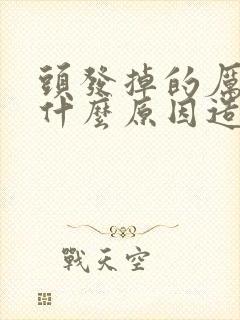 頭發掉的厲
什麼原因造
戰天空